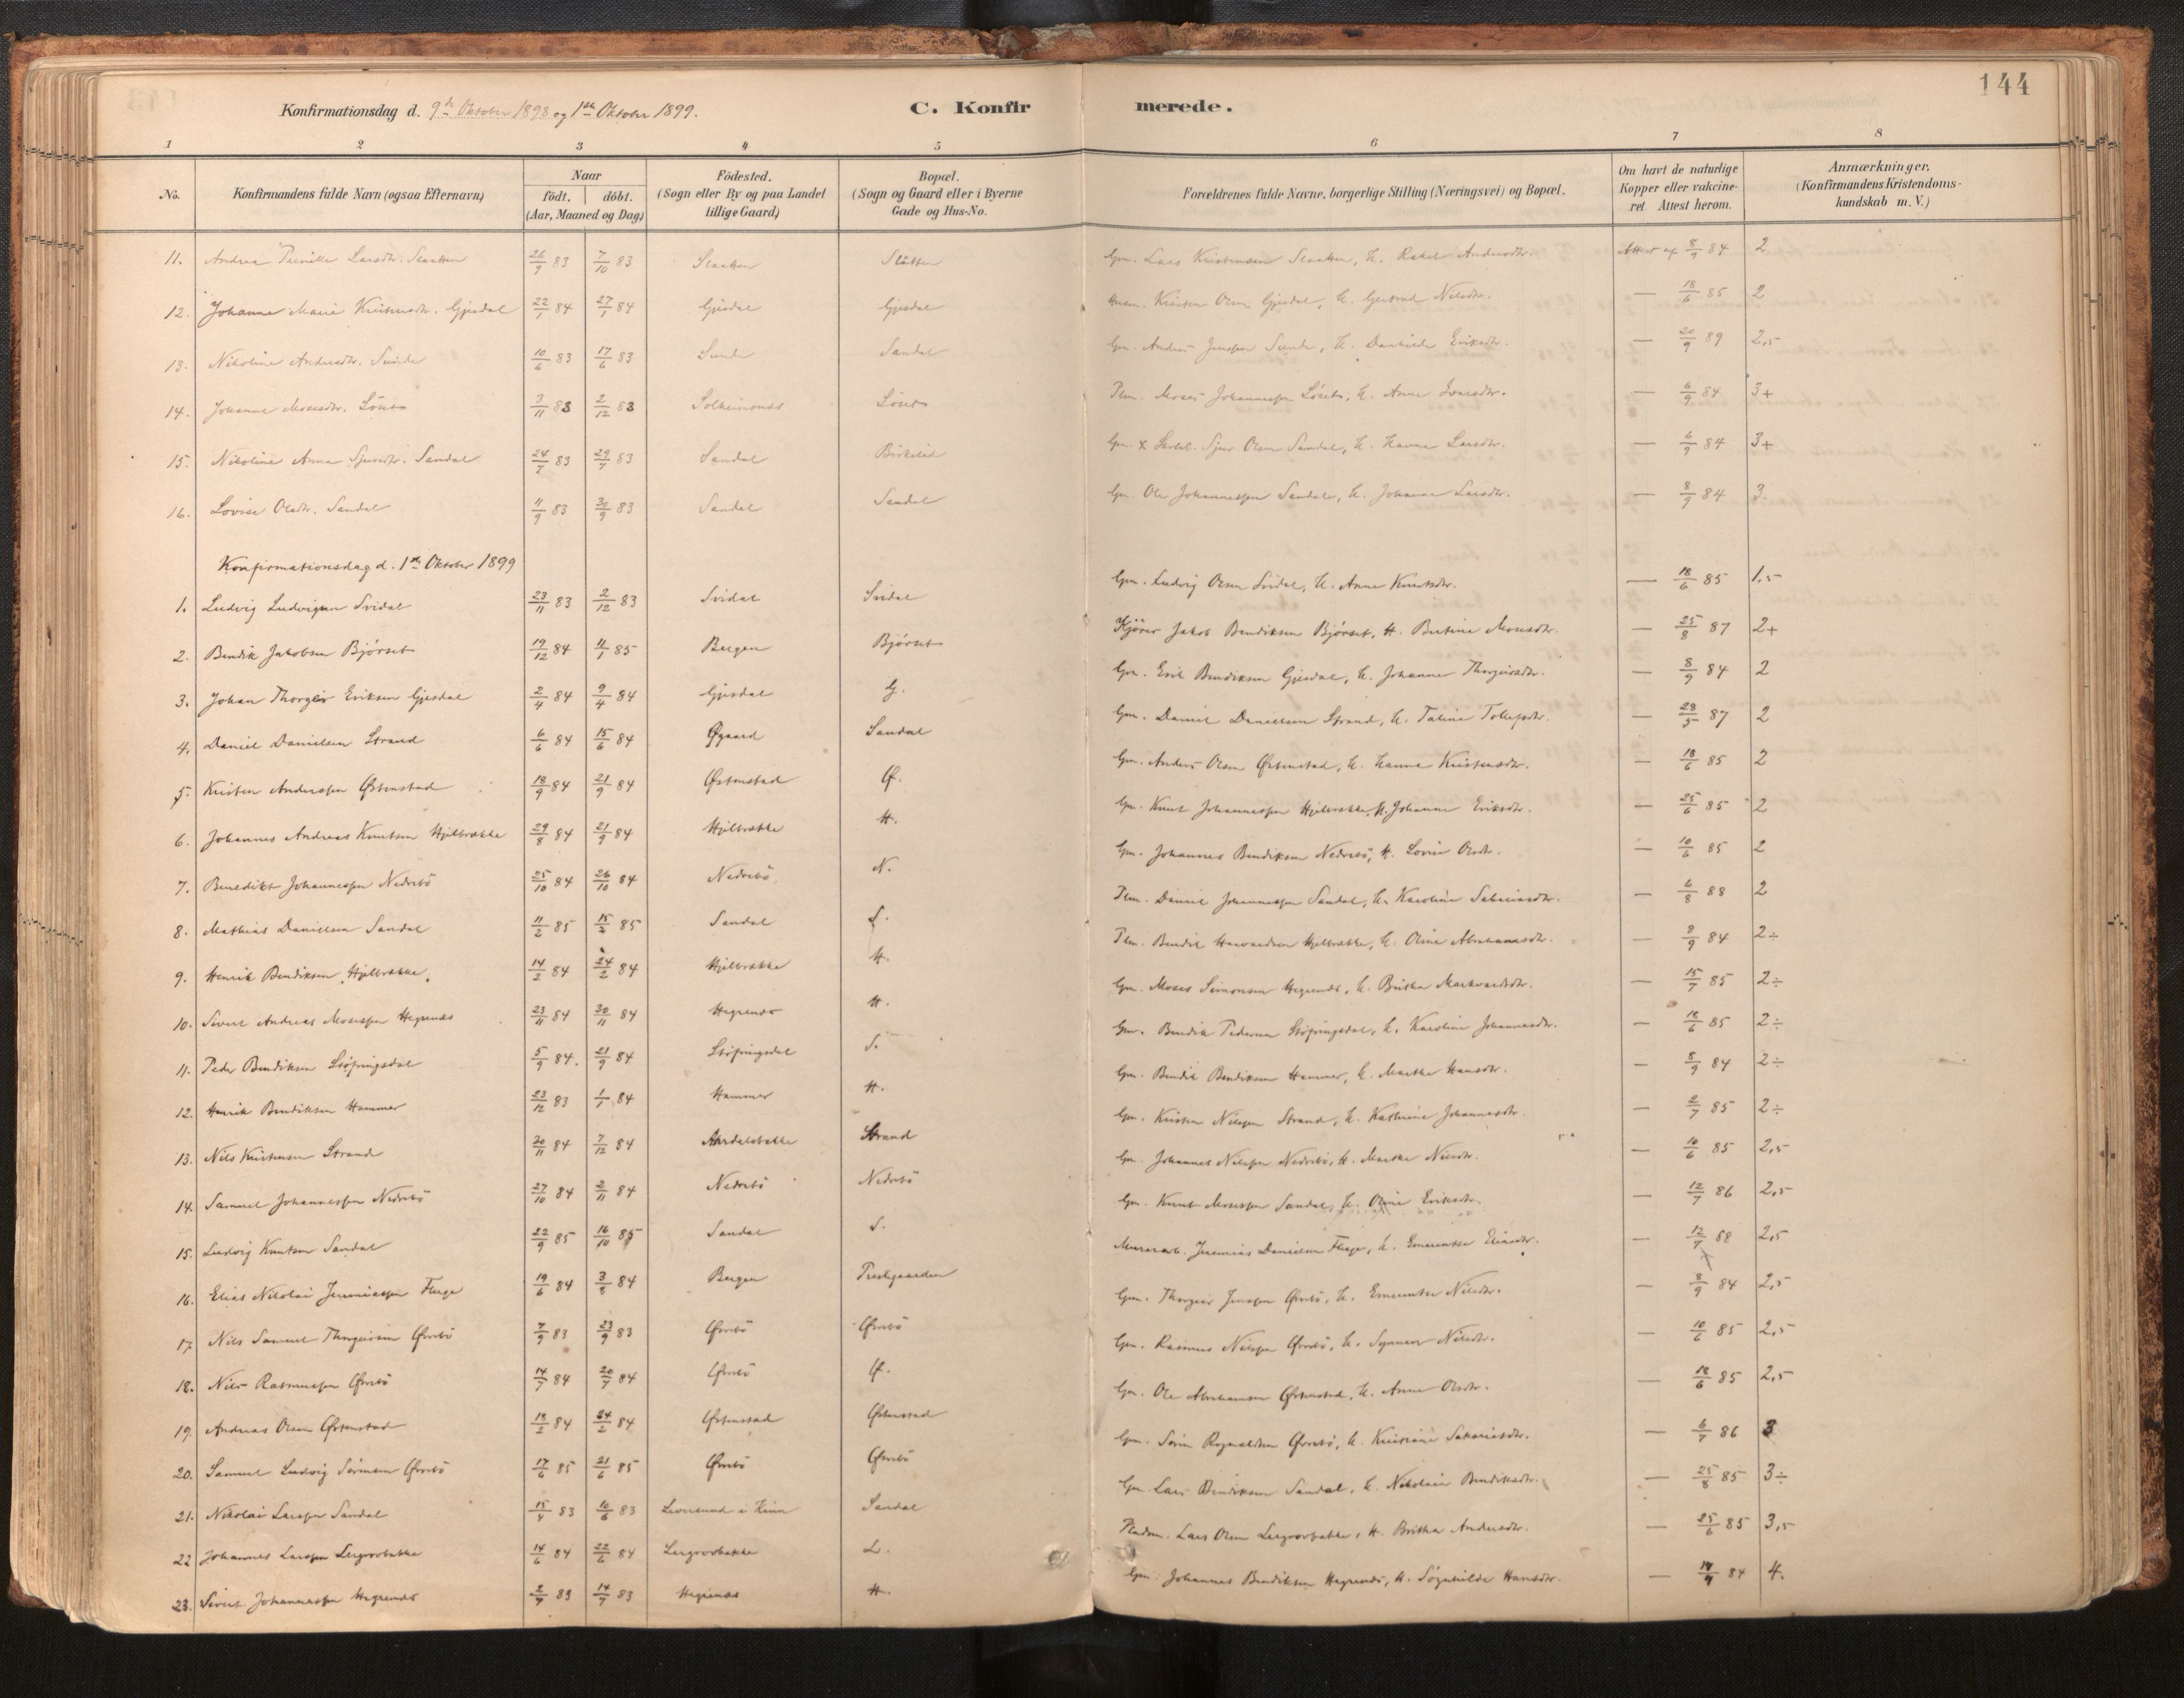 144
Konfirmationsdag d. 9de Oktober 1898 og 1ste Oktober 1899. C. Konfirmerede.
1 2 3 4 5 6 7 8
No. Konfirmandens fulde Navn (ogsaa Efternavn) Naar født. døbt. (Aar, Maaned og Dag) Födested. (Sogn eller By og paa Landet tillige Gaard) Bopæl. (Sogn og Gaard eller i Byerne Gade og Hus-No. Forældrenes fulde Navne, borgerlige Stilling (Næringsvei) og Bopæl. Om havt de naturlige Kopper eller vakcineret. Attest herom. Anmærkninger. (Konfirmandens Kristendomskundskab m. V.)
11. Andrea Larsdtr. Slaatten 26/9 83 7/10 83 Slaatten Slåtten Gm. Lars Kristensen Slaatten, H. Rakel Andersdtr. Attest af 8/9 84 2
12. Johanne Marie Kristensdtr. Gjesdal 22/1 84 27/1 84 Gjesdal Gjesdal Husm. Kristen Olsen Gjesdal, H. Gjertrud Nilsdtr. — 18/6 85 2
13. Nikoline Andersdtr. Sunde 10/6 83 17/6 83 Sunde Sandal Gm. Anders Jenssen Sunde, H. Danielde Eriksdtr. — 20/9 89 2,5
14. Johanne Mosesdtr. Löset 3/11 83 2/12 83 Solheimsnes Löset Plm. Moses Johannessen Löset, H. Anne Ivarsdtr. — 6/9 84 3+
15. Nikoline Anna Sjursdtr. Sandal 24/7 83 29/7 83 Sandal Birkelid Gm. & Sjur Olsen Sandal, H. Hanna Larsdtr. — 6/9 84 3+
16. Lovise Olsdtr. Sandal 11/9 83 /9 83 Sandal Sandal Gm. Ole Johannessen Sandal, H. Johanna Larsdtr. — 8/9 84 3.
Konfirmationsdag d. 1ste Oktober 1899
1. Ludvig Ludvigsen Svidal 23/11 83 2/12 83 Svidal Svidal Gm. Ludvig Olsen Svidal, H. Anne Knutsdtr. — 18/6 85 1.5
2. Bendik Jakobsen Bjørset 19/12 84 11/1 85 Bergen Bjørset Kjører Jakob Bendiksen Bjørset, H. Bertine Mosesdtr. — 25/8 87 2+
3. Johan Thorgeir Eriksen Gjesdal 2/4 84 9/4 84 Gjesdal G. Gm. Erik Bendiksen Gjesdal, H. Johanne Thorgeirsdtr. — 8/9 84 2
4. Daniel Danielsen Strand 6/6 84 15/6 84 Øgaard Sandal Gm. Daniel Danielsen Strand, H. Taline Tollefsdtr. — 28/5 87 2
5. Kristen Anderssen Østenstad 18/9 84 21/9 84 Østenstad Ø. Gm. Anders Olsen Østenstad, H. Hanna Kristensdtr. — 18/6 85 2
6. Johannes Andreas Knutsen Hjelbrække 29/8 84 21/9 84 Hjelbrække H. Gm. Knut Johannessen Hjelbrække, H. Johanne Eriksdtr. — 25/6 85 2
7. Benedikt Johannessen Nedrebö 25/10 84 26/10 84 Nedrebö N. Gm. Johannes Bendiksen Nedrebö, H. Lovise Olsdtr. — 10/6 85 2
8. Mathias Danielsen Sandal 11/2 85 15/2 85 Sandal S. Plm. Daniel Johannessen Sandal, H. Karoline Sakariasdtr. — 6/8 88 2
9. Henrik Bendiksen Hjelbrække. 14/2 84 24/2 84 Hjelbrække H. Plm. Bendik Haavardsen Hjelbrække, H. Oline Abrahamsdtr. — 8/9 84 2÷
10. Sivert Andreas Mosessen Hegrenes 23/11 84 30/11 84 Hegrenes H. Gm. Moses Simonsen Hegrenes, H. Brithe Markvardsdtr. — 15/7 85 2÷
11. Peder Bendiksen Støfringsdal 5/9 84. 21/9 84 Støfringsdal S. Gm. Bendik Pedersen Støfringsdal, H. Karoline Johannesdtr. — 18/6 85 2÷
12. Henrik Bendiksen Hammer 23/12 83 1/1 84 Hammer H. Gm. Bendik Bendiksen Hammer, H. Marthe Hansdtr. — 8/9 84 2÷
13. Nils Kristensen Strand 20/11 84 7/12 84 Aardalsbakke Strand Gm. Kristen Nilssen Strand, H. Kathrine Johannesdtr. — 2/7 85 2÷
14. Samuel Johannessen Nedrebö 27/10 84 2/11 84 Nedrebö Nedrebö Gm. Johannes Nilssen Nedrebö, H. Marthe Nilsdtr. — 10/6 85 2,5
15. Ludvig Knutsen Sandal 22/9 85 16/10 85 Sandal S. Gm. Knut Mosessen Sandal, H. Oline Eriksdtr. — 12/7 86 2,5
16. Elias Nikolai Jeremiassen Fluge 19/6 84 3/8 84 Bergen Prestgaarden Murerarb. Jeremias Danielsen Fluge, H. Emerentse Eliasdtr. — 12/7 88 2,5
17. Nils Samuel Thorgeirsen Øvrebö 7/9 83 23/9 83 Øvrebö Øvrebö Gm. Thorgeir Jenssen Øvrebö, H. Emerentse Nilsdtr. — 8/9 84 2,5
18. Nils Rasmussen Øvrebö 14/7 84 20/7 84 Øvrebö Ø. Gm. Rasmus Nilssen Øvrebö, H. Synneve Nilsdtr. — 10/6 85 2,5
19. Andreas Olsen Østenstad 18/2 84 24/2 84 Østenstad Østenstad Gm. Ole Abrahamsen Østenstad, H. Anne Olsdtr. — 18/6 85 2,5
20. Samuel Ludvig Sörensen Øvrebö 17/6 85 21/6 85 Øvrebö Øvrebö Gm. Sören Rognaldsen Øvrebö, H. Kristine Sakariasdtr. — 6/7 86 3
21. Nikolai Larssen Sandal 15/4 83 10/6 83 Leversund i Kinn Sandal Gm. Lars Bendiksen Sandal, H. Nikoline Bendiksdtr. — 25/8 85 3÷
22 Johannes Larssen Lergrovbakke 14/6 84 22/6 84 Lergrovbakke L. Pladsm. Lars Olsen Lergrovbakke, H. Brithe Andersdtr. — 25/6 85 3,5
23. Sivert Johannessen Hegrenes 2/7 83 14/7 83 Hegrenes H. Gm. Johannes Bendiksen Hegrenes, H. Søgnhilde Hansdtr. — 14/9 84 4.